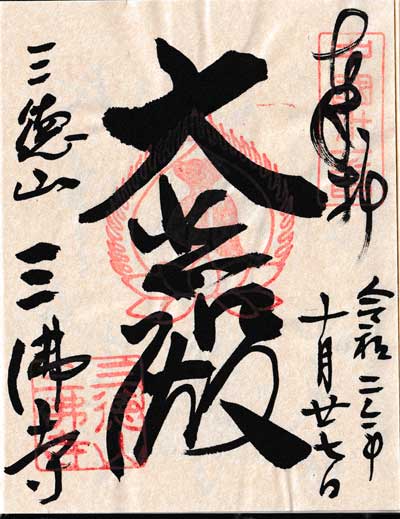 奉拝
令和二年
十月廿七日
大悲殿
三徳山 三佛寺